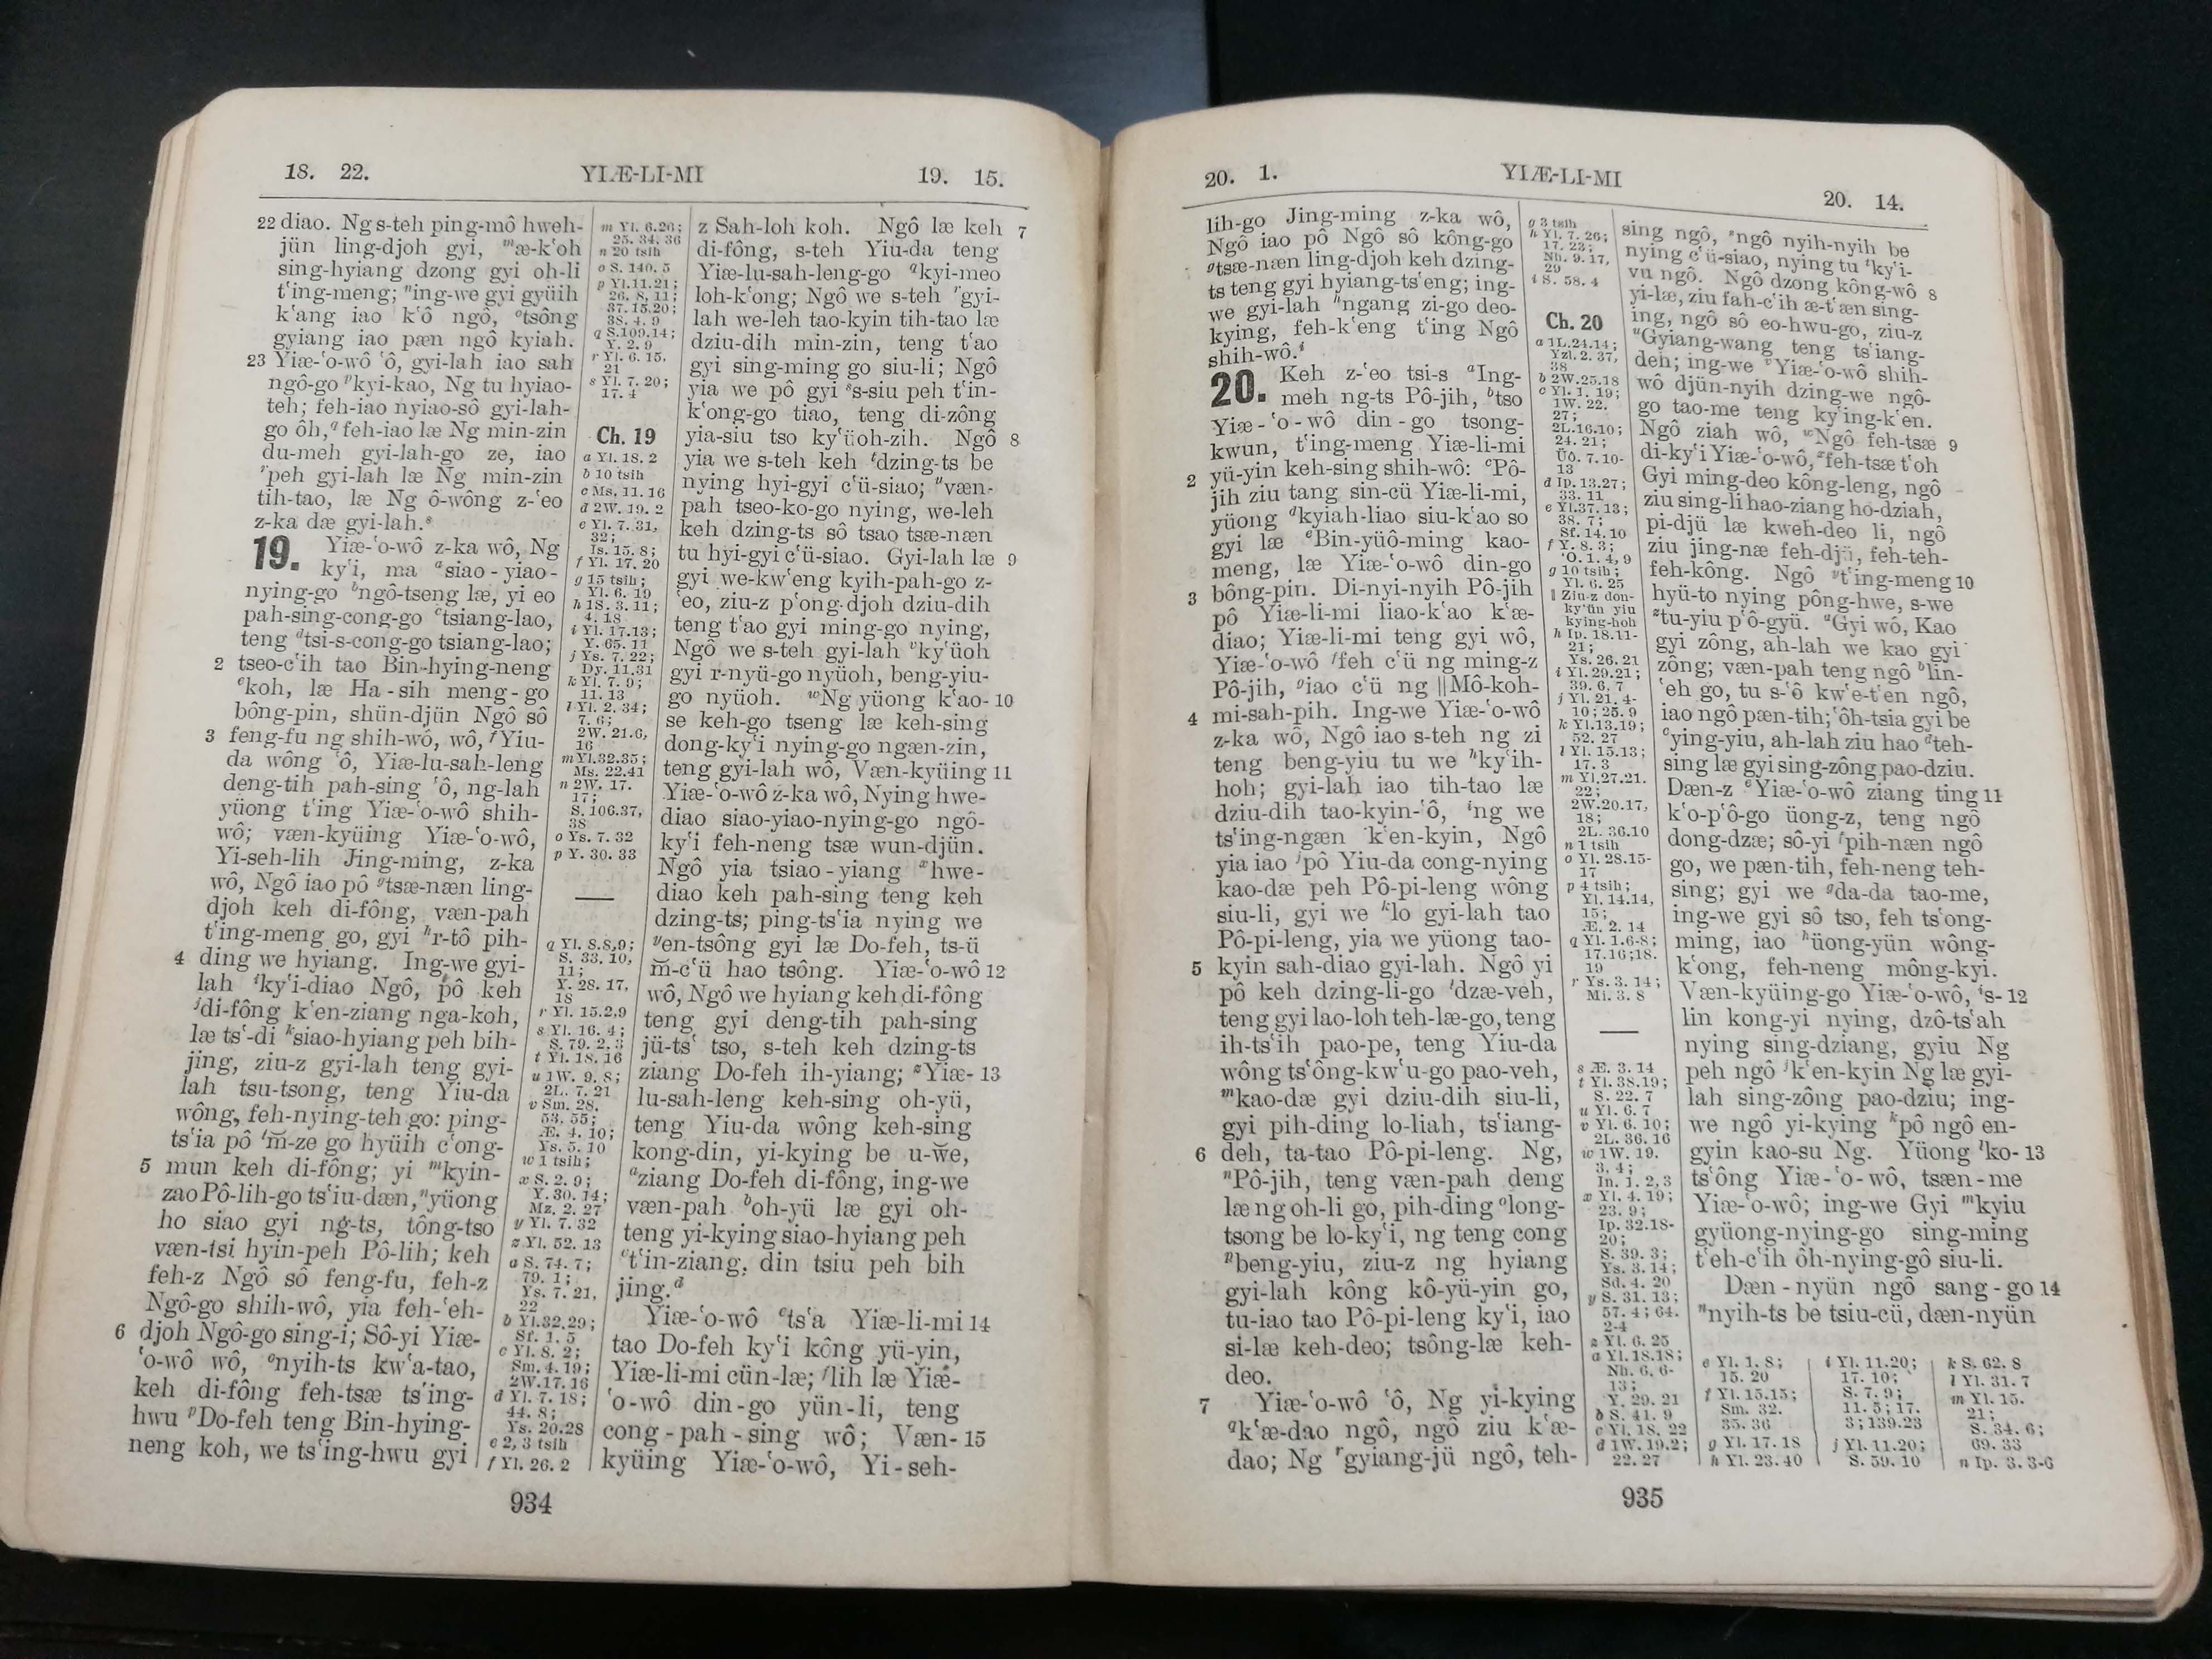 18. 22.
YIÆ-LI-MI
19. 15.
22 diao. Ng s-teh ping-mô hweh-
jün ling-djoh gyi, ᵐæ-k‘oh
sing-hyiang dzong gyi oh-li
t‘ing-meng; ⁿing-we gyi gyüih
k‘ang iao k‘ô ngô, ᵒtsông
gyiang iao pæn ngô kyiah.
23 Yiæ-‘o-wô ‘ô, gyi-lah iao sah
ngô-go ᵖkyi-kao, Ng tu hyiao-
teh; feh-iao nyiao-sô gyi-lah-
go ôh,ᑫ feh-iao læ Ng min-zin
du-meh gyi-lah-go ze, iao
ʳpeh gyi-lah læ Ng min-zin
tih-tao, læ Ng ô-wông z-‘eo
z-ka dæ gyi-lah.ˢ
19. Yiæ-‘o-wô z-ka wô, Ng
ky‘i, ma ᵃsiao-yiao-
nying-go ᵇngô-tseng læ, yi eo
pah-sing-cong-go ᶜtsiang-lao,
teng ᵈtsi-s-cong-go tsiang-lao;
2 tseo-c‘ih tao Bin-hying-neng
ᵉkoh, læ Ha-sih meng-go
bông-pin, shün-djün Ngô sô
3 feng-fu ng shih-wô, wô, ᶠYiu-
da wông ‘ô, Yiæ-lu-sah-leng
deng-tih pah-sing ‘ô, ng-lah
yüong t‘ing Yiæ-‘o-wô shih-
wô; væn-kyüing Yiæ-‘o-wô,
Yi-seh-lih Jing-ming, z-ka
wô, Ngô iao pô ᵍtsæ-næn ling-
djoh keh di-fông, væn-pah
t‘ing-meng go, gyi ʰr-tô pih-
4 ding we hyiang. Ing-we gyi-
lah ⁱky‘i-diao Ngô, pô keh
ʲdi-fông k‘en-ziang nga-koh,
læ ts‘-di ᵏsiao-hyiang peh bih-
jing, ziu-z gyi-lah teng gyi-
lah tsu-tsong, teng Yiu-da
wông, feh-nying-teh go: ping-
ts‘ia pô ˡm̆-ze go hyüih c‘ong-
5 mun keh di-fông; yi ᵐkyin-
zao Pô-lih-go ts‘iu-dæn, ⁿyüong
ho siao gyi ng-ts, tông-tso
væn-tsi hyin-peh Pô-lih; keh
feh-z Ngô sô feng-fu, feh-z
Ngô-go shih-wô, yia feh-‘eh-
6 djoh Ngô-go sing-i; Sô-yi Yiæ-
‘o-wô wô, ᵒnyih-ts kw‘a-tao,
keh di-fông feh-tsæ ts‘ing-
hwu ᵖDo-feh teng Bin-hying-
neng koh, we ts‘ing-hwu gyi
m Yl. 6.26;
25. 34, 36
n 20 tsih
o S. 140. 5
p Yl.11.21;
26. 8, 11;
37.15.20;
38. 4. 9
q S.109.14;
Y. 2. 9
r Yl. 6. 15,
21
s Yl. 7. 20;
17. 4
Ch. 19
a Yl. 18. 2
b 10 tsih
c Ms. 11. 16
d 2W. 19. 2
e Yl. 7. 31,
32;
Is. 15. 8;
f Yl. 17. 20
g 15 tsih;
Yl. 6. 19
h 1S. 3. 11;
4. 18
i Yl. 17.13;
Y. 65. 11
j Ys. 7. 22;
Dy. 11.31
k Yl. 7. 9;
11. 13
l Yl. 2. 34;
7. 6;
2W. 21.6,
16
m Yl.32.35;
Ms. 22.41
n 2W. 17.
17;
S. 106.37,
38
o Ys. 7. 32
p Y. 30. 33
q Yl. 8.8,9;
S. 33. 10,
11;
Y. 28. 17,
18
r Yl. 15.2,9
s Yl. 16. 4;
S. 79. 2, 3
t Yl. 18. 16
u 1W. 9. 8;
2L. 7. 21
v Sm. 28.
53, 55;
Æ. 4. 10;
Ys. 5. 10
w 1 tsih;
x S. 2. 9;
Y. 30. 14;
Mz. 2. 27
y Yl. 7. 32
z Yl. 52. 13
a S. 74. 7;
79. 1;
Ys. 7. 21,
22
b Yl.32.29;
Sf. 1. 5
c Yl. 8. 2;
Sm. 4. 19;
2W. 17. 16
d Yl. 7. 18;
44. 8;
Ys. 20.28
e 2, 3 tsih
f Yl. 26. 2
z Sah-loh koh. Ngô læ keh 7
di-fông, s-teh Yiu-da teng
Yiæ-lu-sah-leng-go ᑫkyi-meo
loh-k‘ong; Ngô we s-teh ʳgyi-
lah we-leh tao-kyin tih-tao læ
dziu-dih min-zin, teng t‘ao
gyi sing-ming go siu-li; Ngô
yia we pô gyi ˢs-siu peh t‘in-
k‘ong-go tiao, teng di-zông
yia-siu tso ky‘üoh-zih. Ngô 8
yia we s-teh keh ᵗdzing-ts be
nying hyi-gyi c‘ü-siao; ᵘvæn-
pah tseo-ko-go nying, we-leh
keh dzing-ts sô tsao tsæ-næn
tu hyi-gyi c‘ü-siao. Gyi-lah læ 9
gyi we-kw‘eng kyih-pah-go z-
‘eo, ziu-z p‘ong-djoh dziu-dih
teng t‘ao gyi ming-go nying,
Ngô we s-teh gyi-lah ᵛky‘üoh
gyi r-nyü-go nyüoh, beng-yiu-
go nyüoh. ʷNg yüong k‘ao- 10
se keh-go tseng læ keh-sing
dong-ky‘i nying-go ngæn-zin,
teng gyi-lah wô, Væn-kyüing 11
Yiæ-‘o-wô z-ka wô, Nying hwe-
diao siao-yiao-nying-go ngô-
ky‘i feh-neng tsæ wun-djün.
Ngô yia tsiao-yiang ˣhwe-
diao keh pah-sing teng keh
dzing-ts; ping-ts‘ia nying we
ʸen-tsông gyi læ Do-feh, ts-ü
m̆-c‘ü hao tsông. Yiæ-‘o-wô 12
wô, Ngô we hyiang keh di-fông
teng gyi deng-tih pah-sing
jü-ts‘ tso, s-teh keh dzing-ts
ziang Do-feh ih-yiang; ᶻYiæ- 13
lu-sah-leng keh-sing oh-yü,
teng Yiu-da wông keh-sing
kong-din, yi-kying be u-w̆e,
ᵃziang Do-feh di-fông, ing-we
væn-pah ᵇoh-yü læ gyi oh-
teng yi-kying siao-hyiang peh
ᶜt‘in-ziang, din tsiu peh bih
jing.ᵈ
Yiæ-‘o-wô ᵉts‘a Yiæ-li-mi 14
tao Do-feh ky‘i kông yü-yin,
Yiæ-li-mi cün-læ; ᶠlih læ Yiæ-
‘o-wô din-go yün-li, teng
cong-pah-sing wô; Væn- 15
kyüing Yiæ-‘o-wô, Yi-seh-
934
20. 1.
YIÆ-LI-MI
20. 14.
lih-go Jing-ming z-ka wô,
Ngô iao pô Ngô sô kông-go
ᵍtsæ-næn ling-djoh keh dzing-
ts teng gyi hyiang-ts‘eng; ing-
we gyi-lah ʰngang zi-go deo-
kying, feh-k‘eng t‘ing Ngô
shih-wô.ⁱ
20. Keh z-‘eo tsi-s ᵃIng-
meh ng-ts Pô-jih, ᵇtso
Yiæ-‘o-wô din-go tsong-
kwun, t‘ing-meng Yiæ-li-mi
2 yü-yin keh-sing shih-wô: ᶜPô-
jih ziu tang sin-cü Yiæ-li-mi,
yüong ᵈkyiah-liao siu-k‘ao so
gyi læ ᵉBin-yüô-ming kao-
meng, læ Yiæ-‘o-wô din-go
3 bông-pin. Di-nyi-nyih Pô-jih
pô Yiæ-li-mi liao-k‘ao k‘æ-
diao; Yiæ-li-mi teng gyi wô,
Yiæ-‘o-wô ᶠfeh c‘ü ng ming-z
Pô-jih, ᵍiao c‘ü ng ‖Mô-koh-
4 mi-sah-pih. Ing-we Yiæ-‘o-wô
z-ka wô, Ngô iao s-teh ng zi
teng beng-yiu tu we ʰky‘ih-
hoh; gyi-lah iao tih-tao læ
dziu-dih tao-kyin-‘ô, ⁱng we
ts‘ing-ngæn k‘en-kyin, Ngô
yia iao ʲpô Yiu-da cong-nying
kao-dæ peh Pô-pi-leng wông
siu-li, gyi we ᵏlo gyi-lah tao
Pô-pi-leng, yia we yüong tao-
5 kyin sah-diao gyi-lah. Ngô yi
pô keh dzing-li-go ˡdzæ-veh,
teng gyi lao-loh teh-læ-go, teng
ih-ts‘ih pao-pe, teng Yiu-da
wông ts‘ông-kw‘u-go pao-veh,
ᵐkao-dæ gyi dziu-dih siu-li,
gyi pih-ding lo-liah, ts‘iang-
6 deh, ta-tao Pô-pi-leng. Ng,
ⁿPô-jih, teng væn-pah deng
læ ng oh-li go, pih-ding ᵒlong-
tsong be lo-ky‘i, ng teng cong
ᵖbeng-yiu, ziu-z ng hyiang
gyi-lah kông kô-yü-yin go,
tu-iao tao Pô-pi-leng ky‘i, iao
si-læ keh-deo; tsông-læ keh-
deo.
7 Yiæ-‘o-wô ‘ô, Ng yi-kying
ᑫk‘æ-dao ngô, ngô ziu k‘æ-
dao; Ng ʳgyiang-jü ngô, teh-
g 3 tsih
h Yl. 7. 26;
17. 23;
Nh. 9. 17,
29
i S. 58. 4
Ch. 20
a 1L.24.14;
Yzl. 2. 37,
38
b 2W.25.18
c Yl. 1. 19;
1W. 22.
27;
2L.16.10;
24. 21;
Üô. 7. 10-
13
d Ip. 13.27;
33. 11
e Yl.37. 13;
38. 7;
Sf. 14. 10
f Y. 8. 3;
‘O. 1. 4, 9
g 10 tsih;
Yl. 6. 25
‖ Ziu-z don-
ky‘ün yiu
kying-hoh
h Ip. 18.11-
21;
Ys. 26. 21
i Yl. 29.21;
39. 6, 7
j Yl. 21. 4-
10; 25. 9
k Yl.13.19;
52. 27
l Yl. 15.13;
17. 3
m Yl.27.21.
22;
2W.20.17,
18;
2L. 36.10
n 1 tsih
o Yl. 28.15-
17
p 4 tsih;
Yl. 14.14,
15;
Æ. 2. 14
q Yl. 1.6-8;
17.16;18.
19
r Ys. 3. 14;
Mi. 3. 8
s Æ. 3. 14
t Yl. 38.19;
S. 22. 7
u Yl. 6. 7
v Yl. 6. 10;
2L. 36. 16
w 1W. 19.
3, 4;
In. 1. 2,3
x Yl. 4. 19;
23. 9;
Ip. 32.18-
20;
S. 39. 3;
Ys. 3. 14;
Sd. 4. 20
y S. 31. 13;
57. 4; 64.
2-4
z Yl. 6. 25
a Yl.18.18;
Nh. 6, 6-
13;
Y. 29. 21
b S. 41. 9
c Yl. 18. 22
d 1W. 19.2;
22. 27
sing ngô, ˢngô nyih-nyih be
nying c‘ü-siao, nying tu ᵗky‘i-
vu ngô. Ngô dzong kông-wô 8
yi-læ, ziu fah-c‘ih æ-t‘æn sing-
ing, ngô sô eo-hwu-go, ziu-z
ᵘGyiang-wang teng ts‘iang-
deh; ing-we ᵛYiæ-‘o-wô shih-
wô djün-nyih dzing-we ngô-
go tao-me teng ky‘ing-k‘en.
Ngô ziah wô, ʷNgô feh-tsæ 9
di-ky‘i Yiæ-‘o-wô, ˣfeh-tsæ t‘oh
Gyi ming-deo kông-leng, ngô
ziu sing-li hao-ziang ho-dziah,
pi-djü læ kweh-deo li, ngô
ziu jing-næ feh-djü, feh-teh-
feh-kông. Ngô ʸt‘ing-meng 10
hyü-to nying pông-hwe, s-we
ᶻtu-yiu p‘ô-gyü. ᵃGyi wô, Kao
gyi zông, ah-lah we kao gyi
zông; væn-pah teng ngô ᵇlin-
‘eh go, tu s-‘ô kw‘e-t‘en ngô,
iao ngô pæn-tih; ‘ôh-tsia gyi be
ᶜying-yiu, ah-lah ziu hao ᵈteh-
sing læ gyi sing-zông pao-dziu.
Dæn-z ᵉYiæ-‘o-wô ziang ting 11
k‘o-p‘ô-go üong-z, teng ngô
dong-dzæ; sô-yi ᶠpih-næn ngô
go, we pæn-tih, feh-neng teh-
sing; gyi we ᵍda-da tao-me,
ing-we gyi sô tso, feh ts‘ong-
ming, iao ʰüong-yün wông-
k‘ong, feh-neng mông-kyi.
Væn-kyüing-go Yiæ-‘o-wô, ⁱs- 12
lin kong-yi nying, dzô-ts‘ah
nying sing-dziang, gyiu Ng
peh ngô ʲk‘en-kyin Ng læ gyi-
lah sing-zông pao-dziu; ing-
we ngô yi-kying ᵏpô ngô en-
gyin kao-su Ng. Yüong ˡko- 13
ts‘ông Yiæ-‘o-wô, tsæn-me
Yiæ-‘o-wô; ing-we Gyi ᵐkyiu
gyüong-nying-go sing-ming
t‘eh-c‘ih ôh-nying-gô siu-li.
Dæn-nyün ngô sang-go 14
ⁿnyih-ts be tsiu-cü, dæn-nyün
e Yl. 1. 8;
15. 20
f Yl. 15.15;
Sm. 32.
35. 36
g Yl. 17. 18
h Yl. 23. 40
i Yl. 11.20;
17. 10;
S. 7. 9;
11. 5; 17.
3; 139.23
j Yl. 11.20;
S. 59. 10
k S. 62. 8
l Yl. 31. 7
m Yl. 15.
21;
S. 34. 6;
69. 33
n Ip. 3. 3-6
935